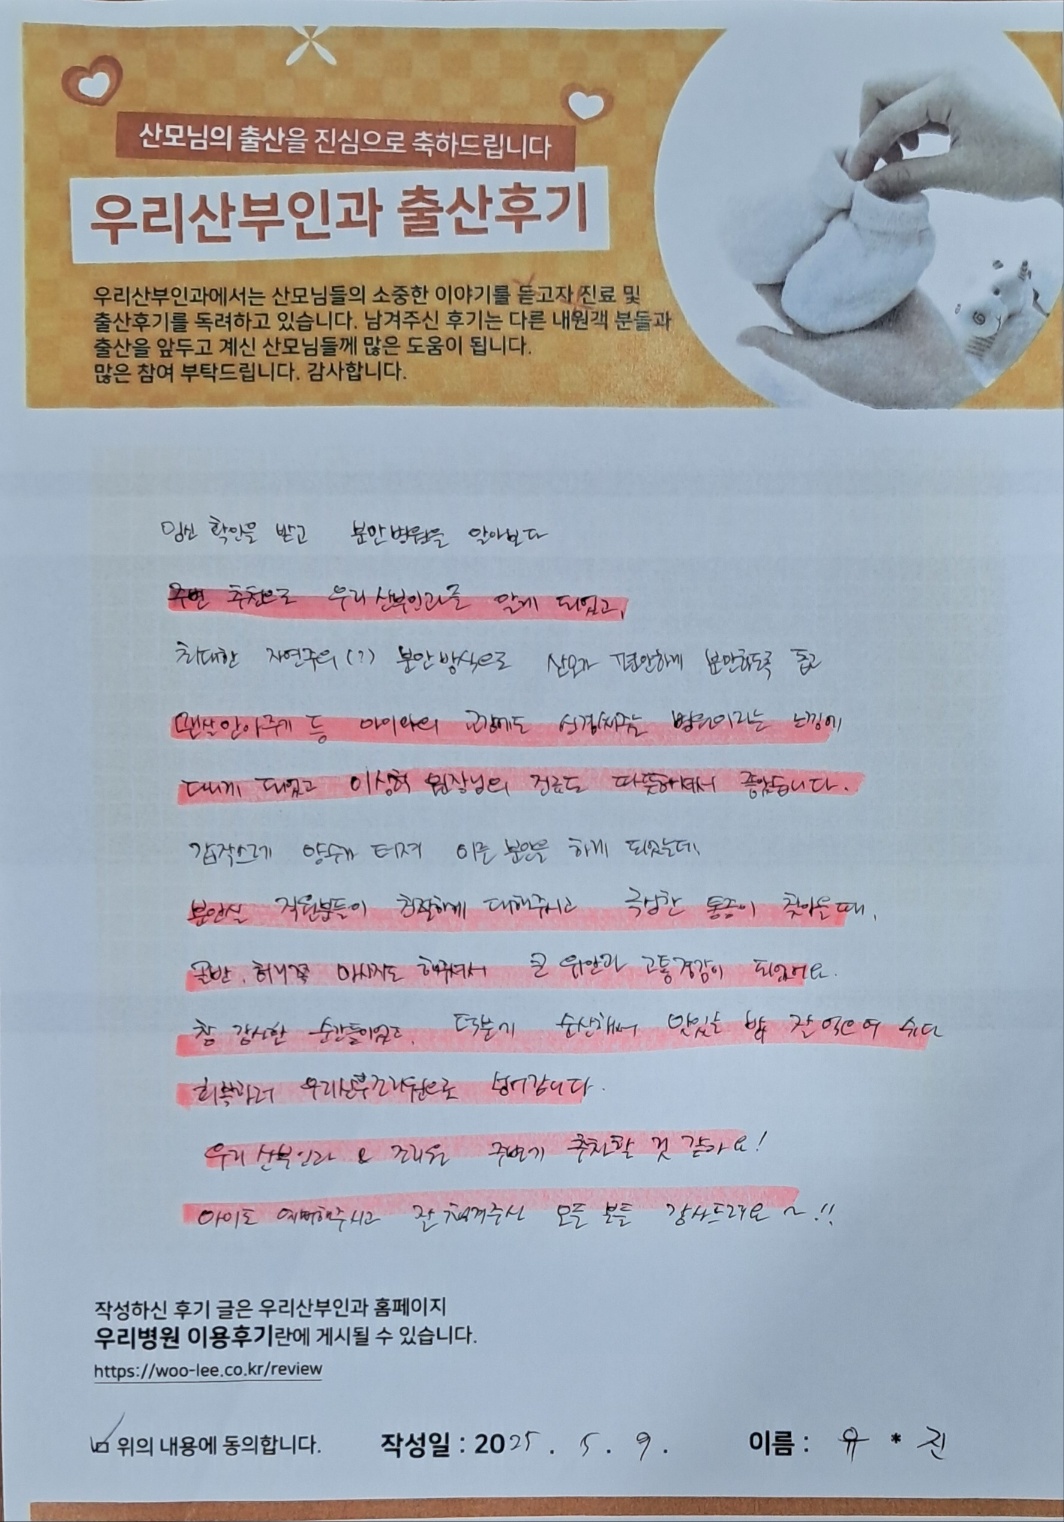 산모님의 출산을 진심으로 축하드립니다
우리산부인과 출산후기
우리산부인과에서는 산모님들의 소중한 이야기를 듣고자 진료 및
출산후기를 독려하고 있습니다. 남겨주신 후기는 다른 내원객 분들과
출산을 앞두고 계신 산모님들께 많은 도움이 됩니다.
많은 참여 부탁드립니다. 감사합니다.
임신 확인을 받고 분만병원을 알아보다
주변 추천으로 우리산부인과를 알게 되었고,
최대한 자연주의(?) 분만방식으로 산모가 편안하게 분만하도록 돕고
맨살안아주기 등 아이와의 교감에도 신경써주는 병원이라는 느낌에
다니게 되었고 이상혁 원장님의 진료도 따뜻하셔서 좋았습니다.
갑작스레 양수가 터져 이른 분만을 하게 되었는데,
분만실 직원분들이 친절하게 대해주시고 극심한 통증이 찾아올 때,
골반, 허리쪽 마사지도 해주셔서 큰 위안과 고통경감이 되었어요.
참 감사한 순간들이었고, 덕분에 순산해서 맛있는 밥 잘 먹으며 쉬다
회복하러 우리산부조리원으로 넘어갑니다.
우리 산부인과 & 조리원 주변에 추천할 것 같아요!
아이도 예뻐해주시고 잘 챙겨주신 모든 분들 감사드려요~!!
작성하신 후기 글은 우리산부인과 홈페이지
우리병원 이용후기란에 게시될 수 있습니다.
https://woo-lee.co.kr/review
위의 내용에 동의합니다. 작성일 : 2025. 5. 9. 이름 : 유 * 진